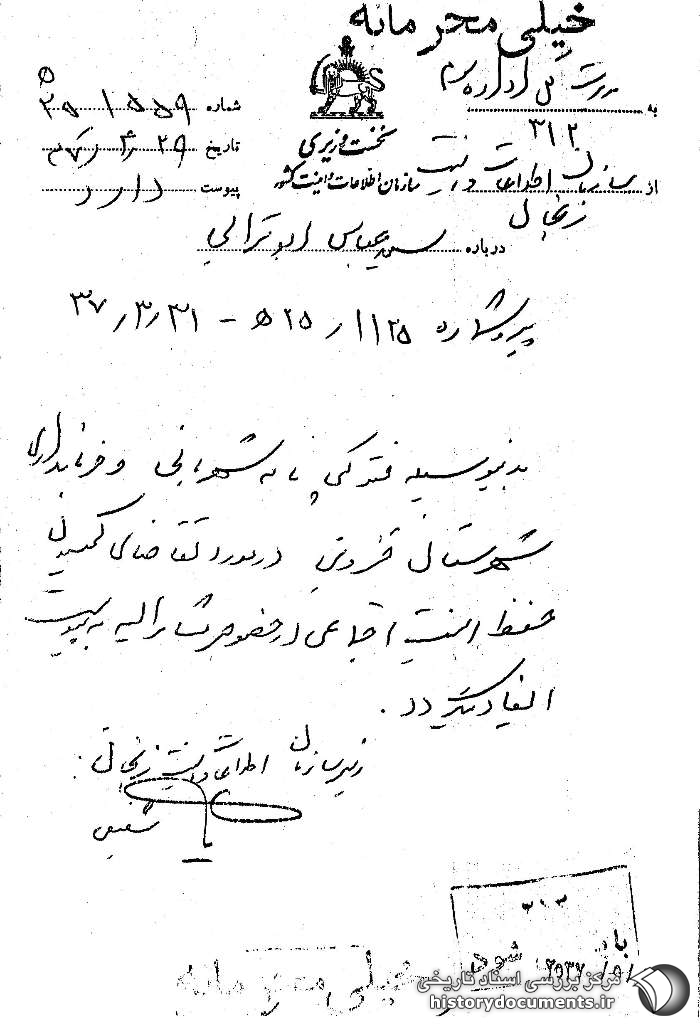 خیلی محرمانه
به ریاست کل اداره سوم
۳۱۲
نخست وزیری
سازمان اطلاعات و امنیت کشور
از سازمان اطلاعات و امنیت
زنجان
شماره ۱۵۵۹
تاریخ ۲۹
پیوست دارد
درباره سید عباس ابوترابی
پیرو شماره ۱۱۲۵ر ۵۲۵ - ۳۷٫۳٫۳۱
بدینوسیله فتوکپی نامه شهربانی و فرمانداری
شهرستان قزوین در مورد تقاضای کمیسیون
حفظ امنیت اجتماعی در خصوص مشارالیه به پیوست
ایفاد میگردد .
رئیس سازمان اطلاعات و امنیت زنجان
۳۱۲
خیلی محرمانه
مرکز بررسی اسناد تاریخی
historydocuments.ir